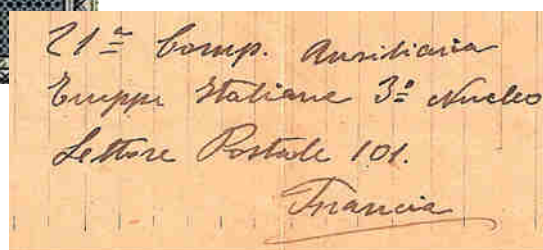 21ª Comp. Ausiliaria
Truppe Italiane 3º Nucleo
Settore Postale 101.
Francia